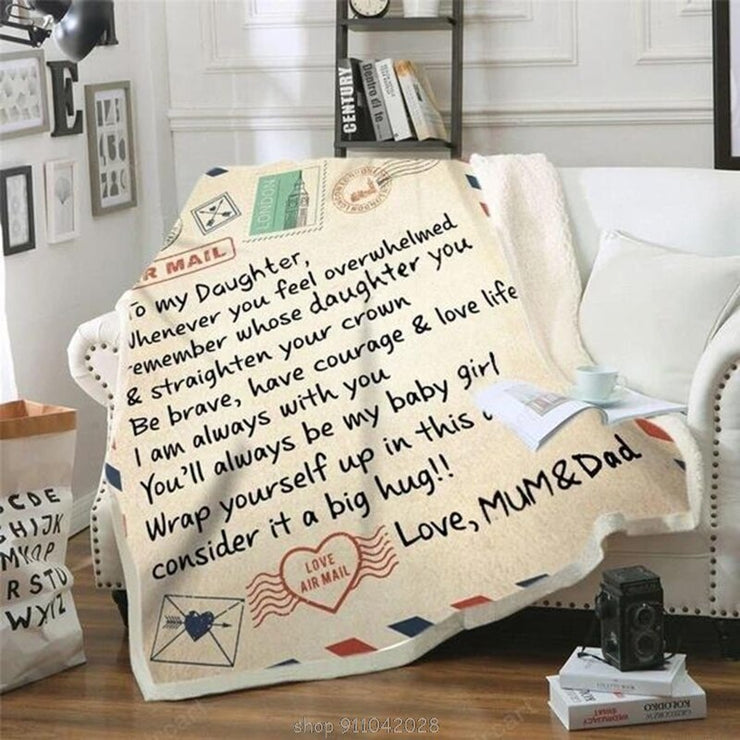 E
CENTURY
Dentro di te
LONDON
R MAIL
To my Daughter,
Whenever you feel overwhelmed
remember whose daughter you
& straighten your crown
Be brave, have courage & love life
I am always with you
You'll always be my baby girl
Wrap yourself up in this
consider it a big hug!!
Love, MUM&Dad
LOVE
AIR MAIL
CDE
GHIJK
RSTU
WXYZ
KOŁODKO
GRZEGORZ W.
WĘDRUJĄCY
ŚWIAT
shop 911042028